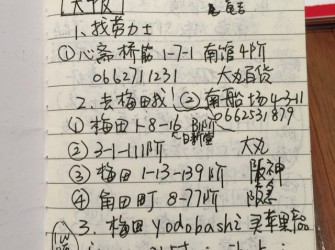 大阪
1、找劳力士
① 心斋桥筋 1-7-1 南馆4阶
0662711231 大丸百货
2、去梅田找! ② 南船场4-3-11
0662531879
① 梅田1-8-16
② 3-1-1 11阶 大丸
③ 梅田1-13-13 9阶 阪神
④ 角田町 8-7 7阶 阪急
3、梅田 yodobashi 买苹果